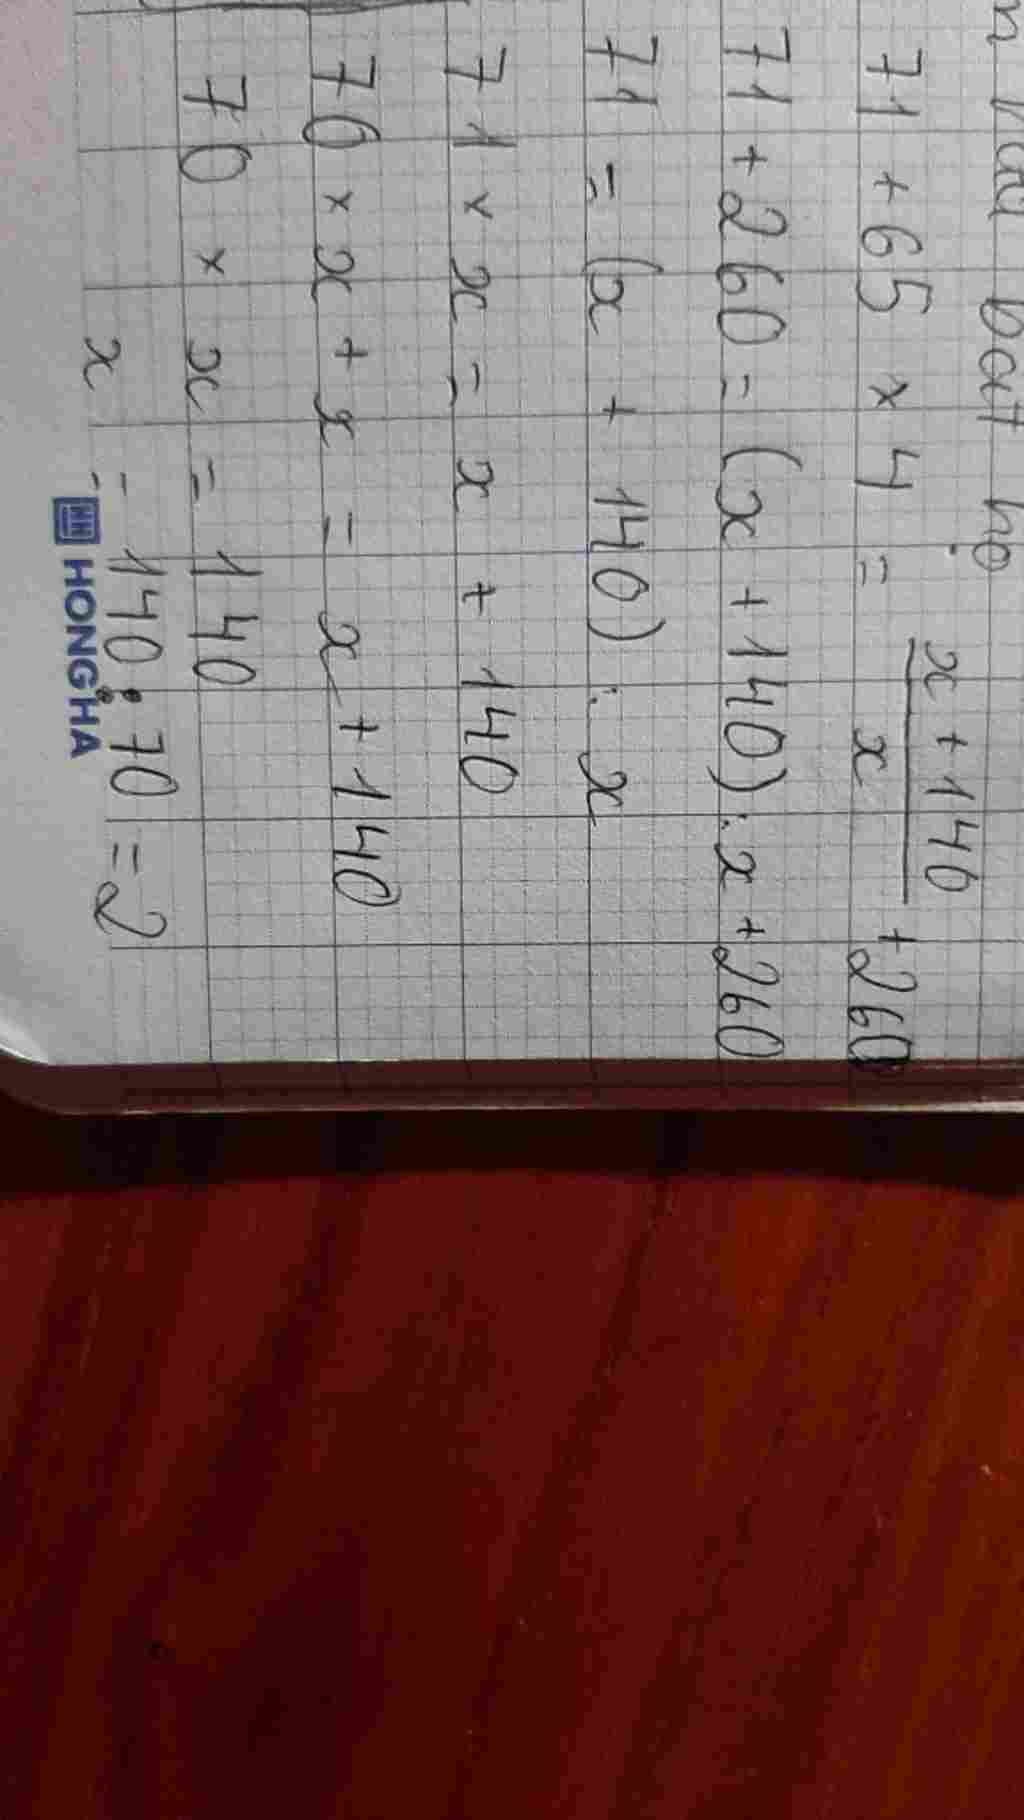 bớt họ
71 + 65 × 4 = \frac{x + 140}{x} + 260
71 + 260 = (x + 140) : x + 260
71 = (x + 140) : x
71 × x = x + 140
70 × x + x = x + 140
70 × x = 140
x = 140 : 70 = 2
HONG HA